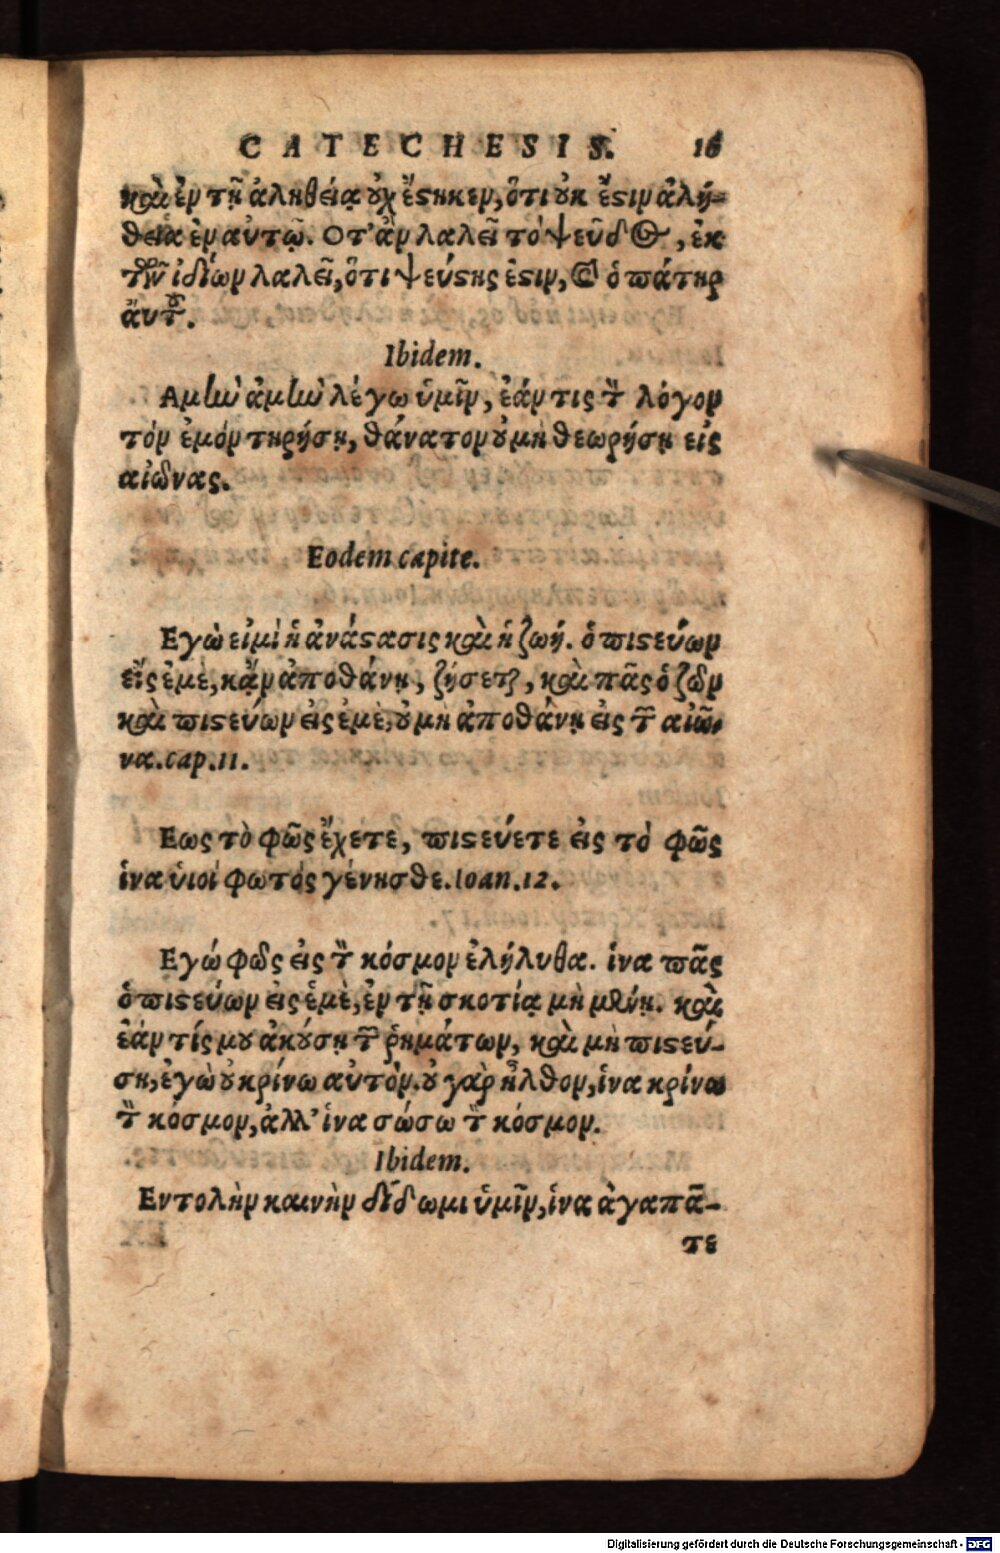 CATECHESIS. 16
καὶ ἐν τῇ ἀληθείᾳ οὐχ ἕστηκεν, ὅτι οὐκ ἔστιν ἀλή-
θεια ἐν αὐτῷ. Οτ' ἂν λαλεῖ τὸ ψεῦδος, ἐκ
τῶν ἰδίων λαλεῖ, ὅτι ψεύστης ἐστιν, καὶ ὁ πάτηρ
ἀυτοῦ.
Ibidem.
Αμὴν ἀμὴν λέγω ὑμῖν, ἐάν τις τὸν λόγον
τόν ἐμόν τηρήσῃ, θάνατον οὐ μὴ θεωρήσῃ εἰς
αἰῶνας.
Eodem capite.
Εγὼ εἰμὶ ἡ ἀνάστασις καὶ ἡ ζωή. ὁ πιστεύων
εἴς ἐμὲ, κἄν ἀποθάνῃ, ζήσεται, καὶ πᾶς ὁ ζῶν
καὶ πιστεύων εἰς ἐμὲ, οὐ μη ἀποθάνῃ εἰς τὸν αἰῶ-
να. cap. 11.
Εως τὸ φῶς ἔχετε, πιστεύετε εἰς τὸ φῶς
ἵνα ὑιοί φωτός γένησθε. Ioan. 12.
Εγώ φῶς εἰς τὸν κόσμον ἐλήλυθα. ἵνα πᾶς
ὁ πιστεύων εἰς ἐμὲ, ἐν τῇ σκοτίᾳ μὴ μείνῃ. καὶ
ἐάν τίς μου ἀκούσῃ τῶν ῥημάτων, καὶ μὴ πιστεύ-
σῃ, ἐγὼ οὐ κρίνω αὐτόν. οὐ γὰρ ἦλθον, ἵνα κρίνω
τὸν κόσμον, ἀλλ' ἵνα σώσω τὸν κόσμον.
Ibidem.
Εντολὴν καινὴν δίδωμι ὑμῖν, ἵνα ἀγαπᾶ-
τε
Digitalisierung gefördert durch die Deutsche Forschungsgemeinschaft - DFG